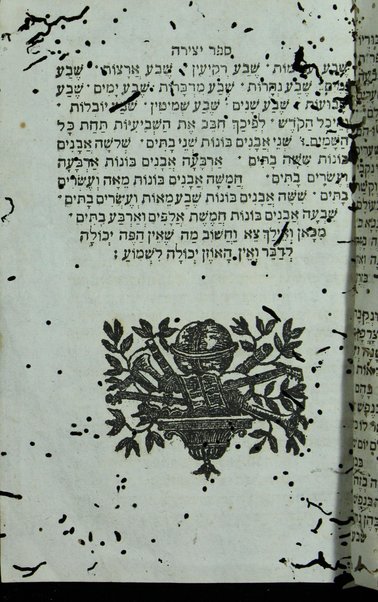 ספר יצירה
שבע רקיעין · שבע ארצות · שבע
שבע נהרות · שבע מדברות · שבע ימים · שבע
שבועות · שבע שנים · שבע שמיטין · יובלות ·
היכל הקדש · לפיכך חבב את השביעיות תחת כל
השמים · שני אבנים בונות שני בתים · שלשה אבנים
בונות ששה בתים · ארבעה אבנים בונות ארבעה
ועשרים בתים · חמשה אבנים בונות מאה ועשרים
בתים · ששה אבנים בונות שבע מאות ועשרים בתים ·
שבעה אבנים בונות חמשת אלפים וארבע בתים ·
מכאן ואילך צא וחשוב מה שאין הפה יכולה
לדבר ואין האוזן יכולה לשמוע :